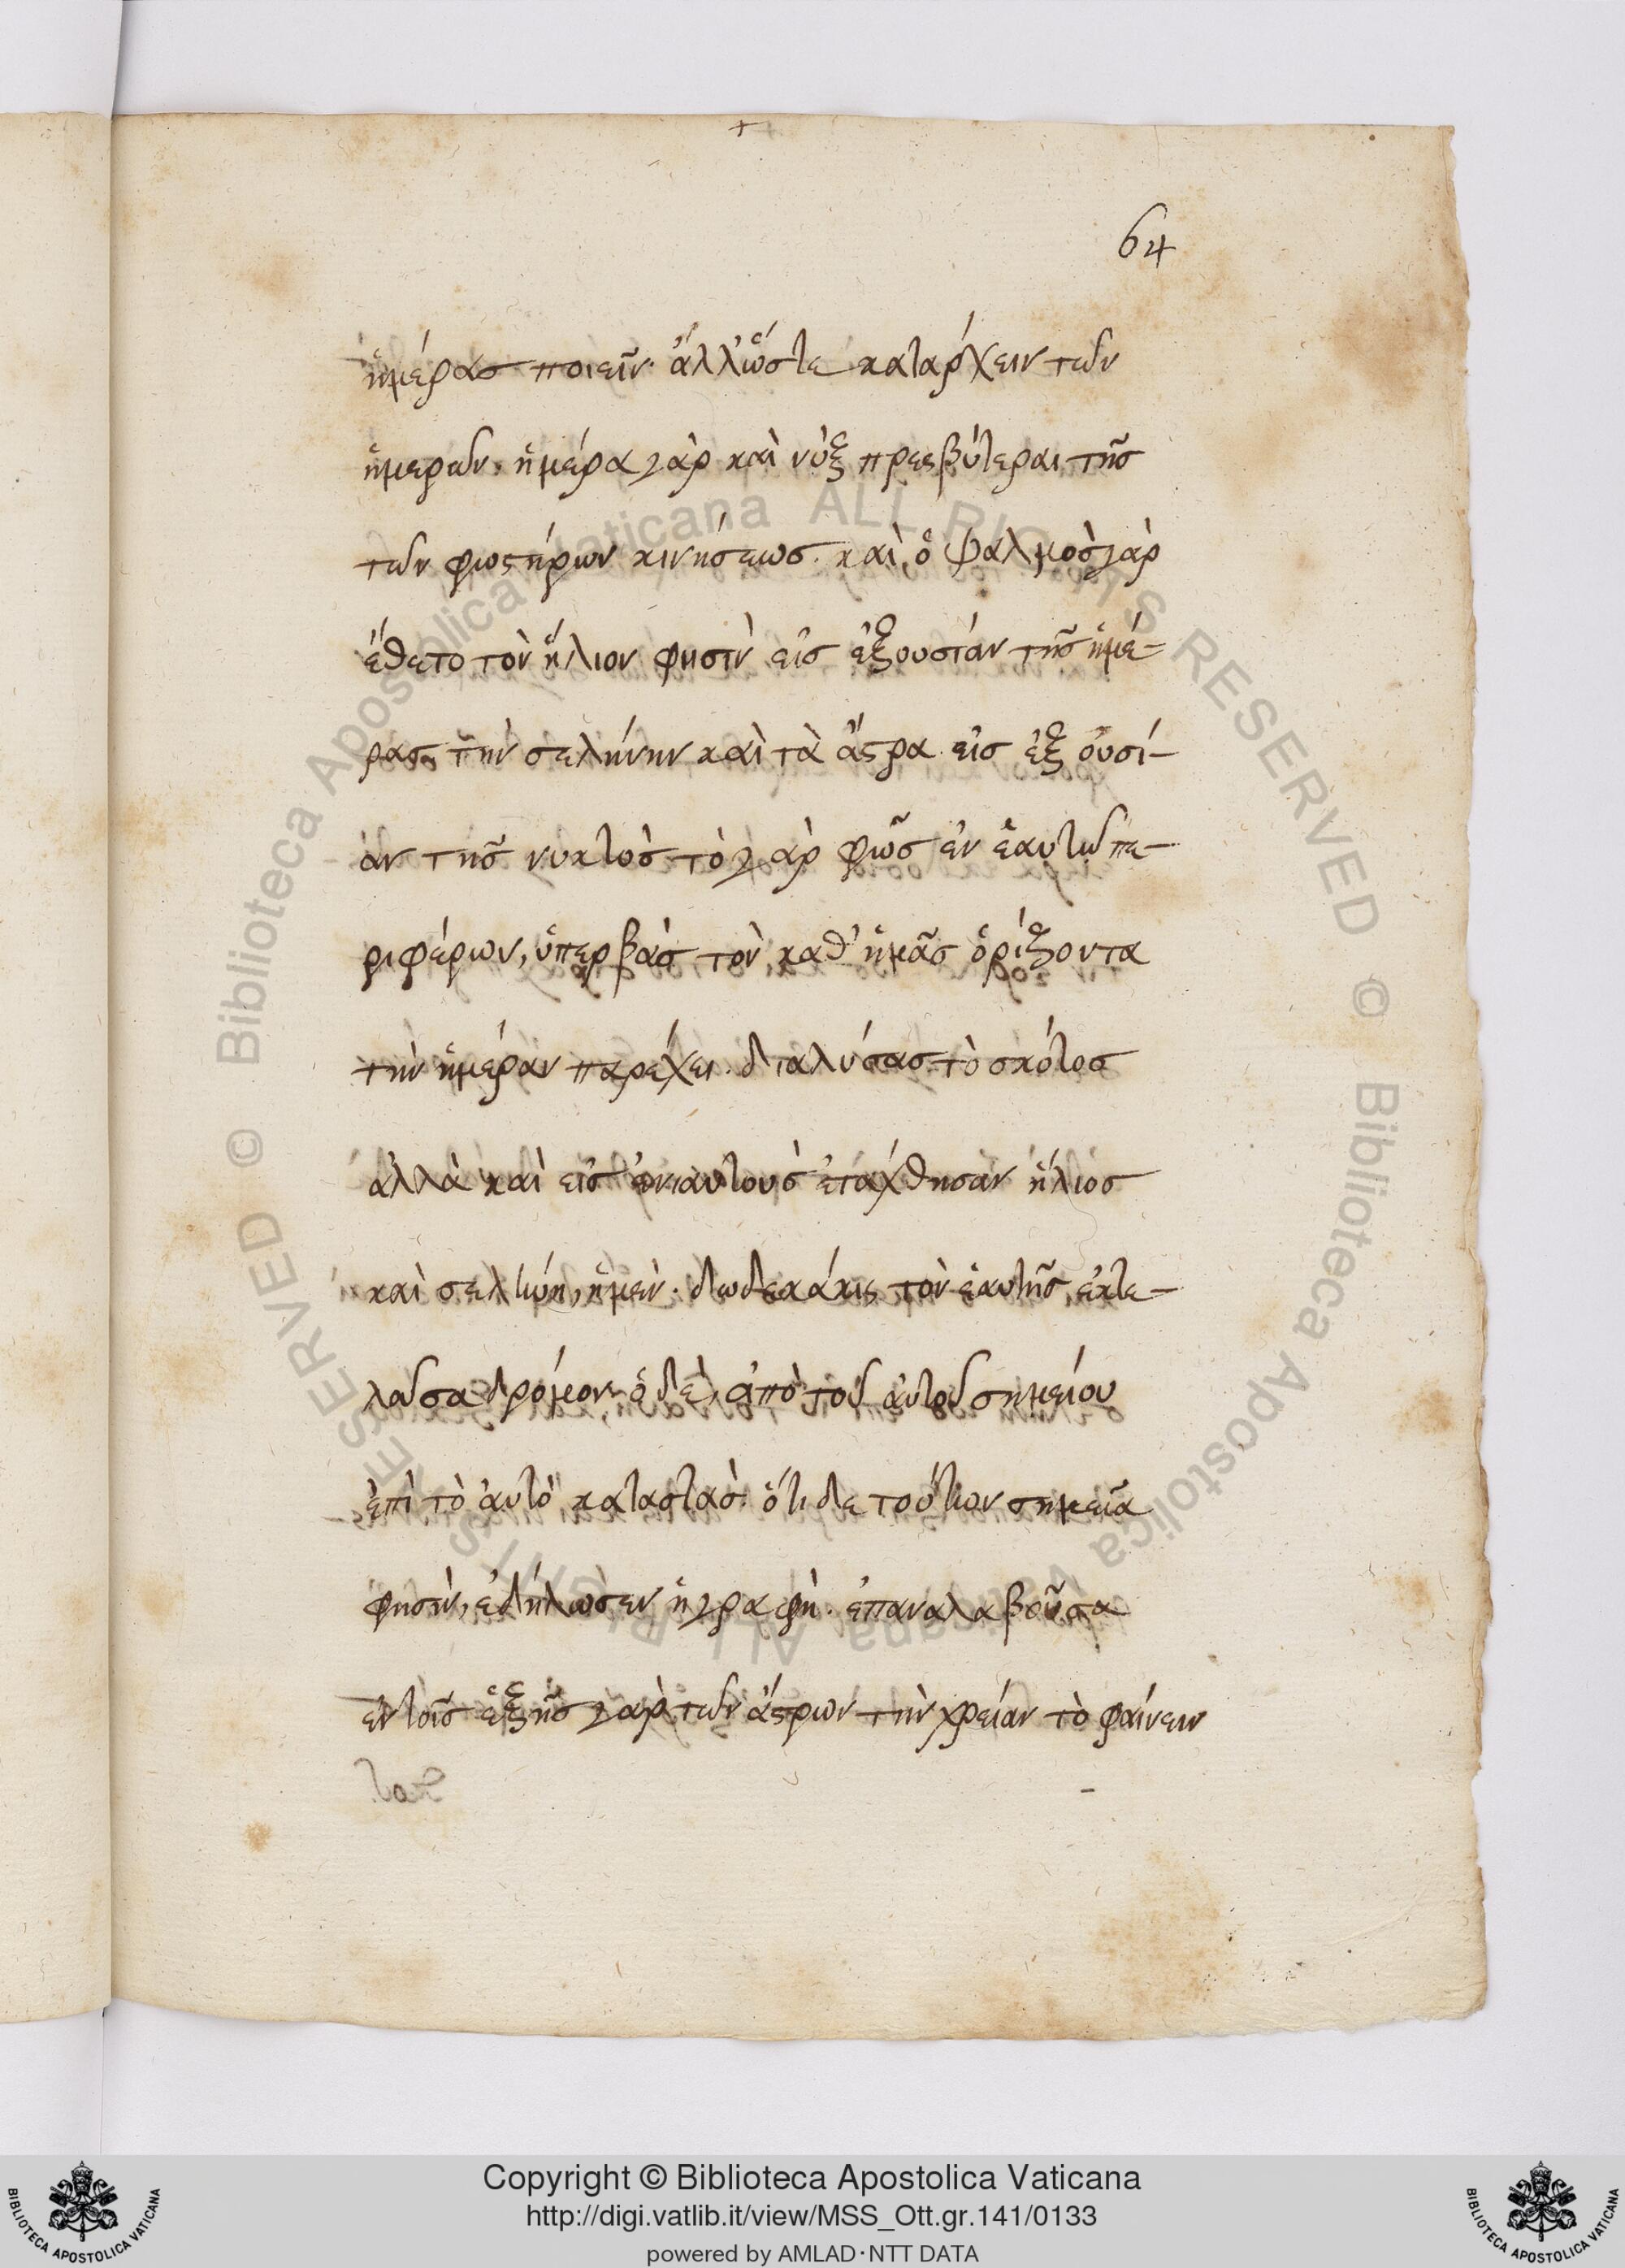 64
ἡμέρας ποιεῖν· ἄλλ' ὥστε καταρχειν τῶν
ἡμερῶν· ἡμέρα γὰρ καὶ νὺξ πρεσβύτεραι τῆς
τῶν φωστήρων κινήσεως· καὶ ὁ ψαλμὸς γὰρ
ἔθετο τὸν ἥλιον φησὶν εἰς ἐξουσίαν τῆς ἡμέ-
ρας· τὴν σελήνην καὶ τὰ ἄστρα εἰς ἐξ ουσί-
αν τῆς νυκτὸς τὸ γὰρ φῶς ἐν ἑαυτῶ πε-
ριφέρων, ὑπερβὰς τὸν καθ' ἡμᾶς ὁρίζοντα
τὴν ἡμέραν παρέχει· διαλύσας τὸ σκότος
ἀλλὰ καὶ εἰς ἐνιαυτοὺς ἐτάχθησαν ἥλιος
καὶ σελήνη, ἡ μὲν· δωδεκάκις τὸν ἑαυτῆς ἐκτε-
λοῦσα δρόμον· ὁ δὲ, ἀπὸ τοῦ αὐτοῦ σημείου
ἐπὶ τὸ αὐτὸ καταστὰς· ὅτι δε τούτων σημεῖα
φησὶν, ἐδήλωσεν ἡ γραφὴ· ἐπαναλαβοῦσα
ἐν τοῖς ἑξῆς γὰρ τῶν ἄστρων τὴν χρείαν τὸ φαίνειν
Biblioteca Apostolica Vaticana ALL RIGHTS RESERVED ©
Biblioteca Apostolica Vaticana ALL RIGHTS RESERVED ©
Copyright © Biblioteca Apostolica Vaticana
http://digi.vatlib.it/view/MSS_Ott.gr.141/0133
powered by AMLAD·NTT DATA
BIBLIOTECA APOSTOLICA VATICANA
BIBLIOTECA APOSTOLICA VATICANA